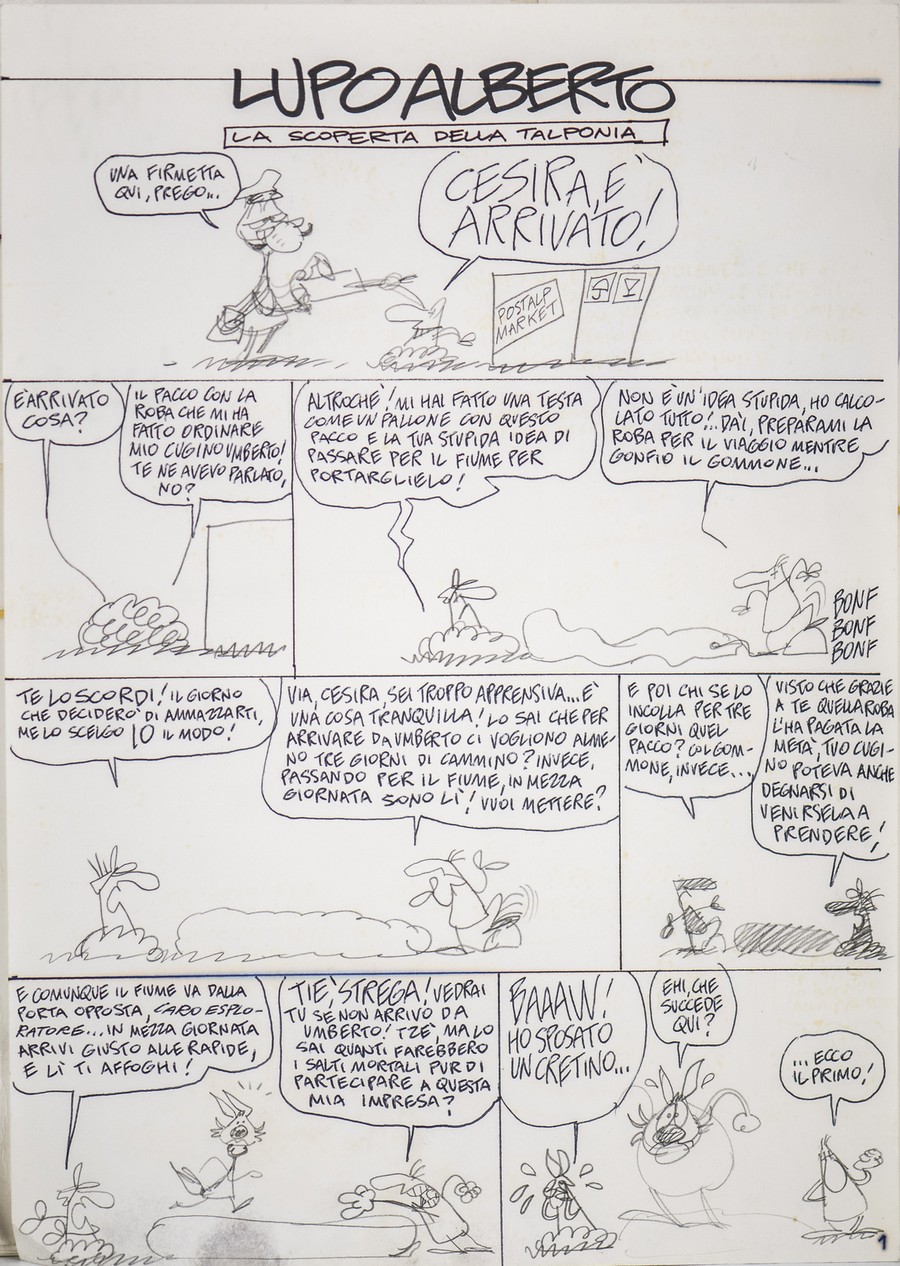 LUPO ALBERTO
LA SCOPERTA DELLA TALPONIA
UNA FIRMETTA
QUI, PREGO...
CESIRA, E'
ARRIVATO!
POSTALP
MARKET
E' ARRIVATO
COSA?
IL PACCO CON LA
ROBA CHE MI HA
FATTO ORDINARE
MIO CUGINO UMBERTO!
TE NE AVEVO PARLATO,
NO?
ALTROCHE'! MI HAI FATTO UNA TESTA
COME UN PALLONE CON QUESTO
PACCO E LA TUA STUPIDA IDEA DI
PASSARE PER IL FIUME PER
PORTARGLIELO!
NON E' UN'IDEA STUPIDA, HO CALCO-
LATO TUTTO!.. DAI, PREPARAMI LA
ROBA PER IL VIAGGIO MENTRE
GONFIO IL GOMMONE...
BONF
BONF
BONF
TE LO SCORDI! IL GIORNO
CHE DECIDERO' DI AMMAZZARTI,
ME LO SCELGO IO IL MODO!
VIA, CESIRA, SEI TROPPO APPRENSIVA... E'
UNA COSA TRANQUILLA! LO SAI CHE PER
ARRIVARE DA UMBERTO CI VOGLIONO ALME-
NO TRE GIORNI DI CAMMINO? INVECE,
PASSANDO PER IL FIUME, IN MEZZA
GIORNATA SONO LI'! VUOI METTERE?
E POI CHI SE LO
INCOLLA PER TRE
GIORNI QUEL
PACCO? COL GOM-
MONE, INVECE...
VISTO CHE GRAZIE
A TE QUELLA ROBA
L'HA PAGATA LA
META', TUO CUGI-
NO POTEVA ANCHE
DEGNARSI DI
VENIRSELA A
PRENDERE!
E COMUNQUE IL FIUME VA DALLA
PORTA OPPOSTA, CARO ESPLO-
RATORE... IN MEZZA GIORNATA
ARRIVI GIUSTO ALLE RAPIDE,
E LI' TI AFFOGHI!
TIE', STREGA! VEDRAI
TU SE NON ARRIVO DA
UMBERTO! TZE', MA LO
SAI QUANTI FAREBBERO
I SALTI MORTALI PUR DI
PARTECIPARE A QUESTA
MIA IMPRESA?
BAAAW!
HO SPOSATO
UN CRETINO...
EHI, CHE
SUCCEDE
QUI?
...ECCO
IL PRIMO!
1